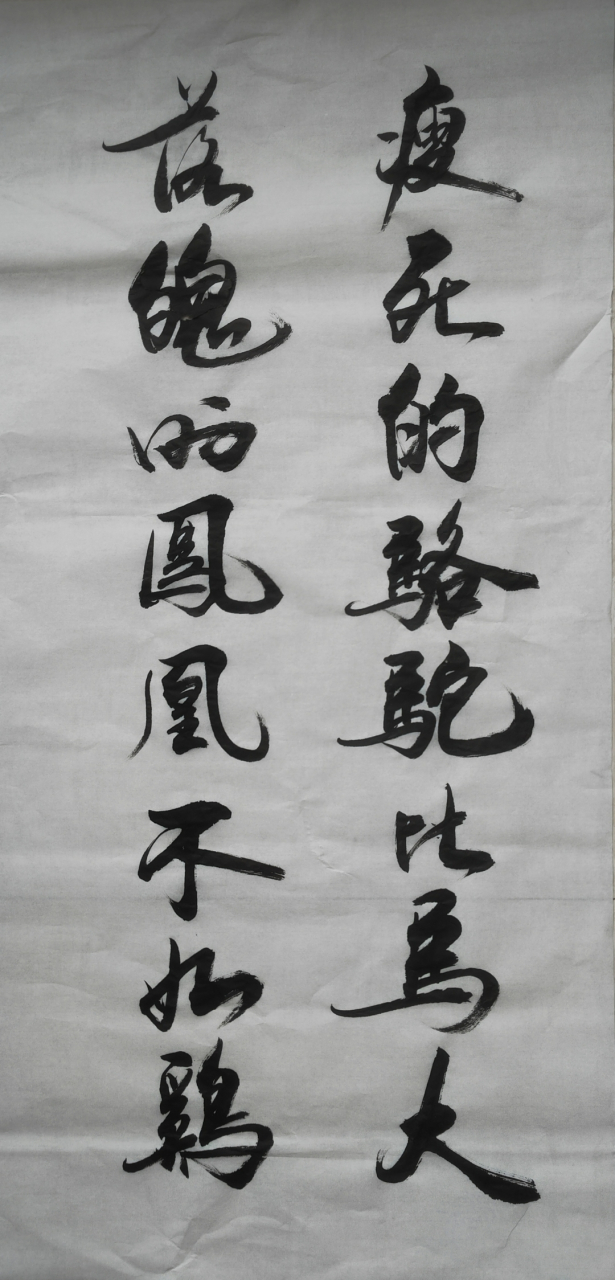 瘦死的駱駝比馬大
落魄的鳳凰不如鷄